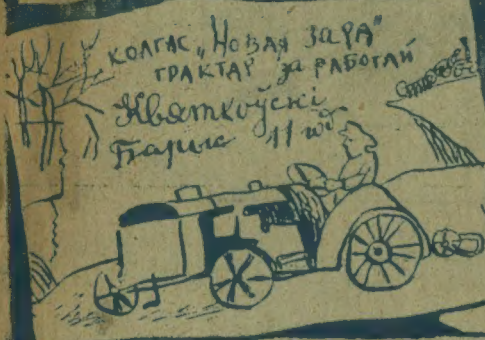 КОЛГАС „НОВАЯ ЗАРА"
ТРАКТАР за РАБОТАЙ
Квяткоўскі
Барыс 11 год